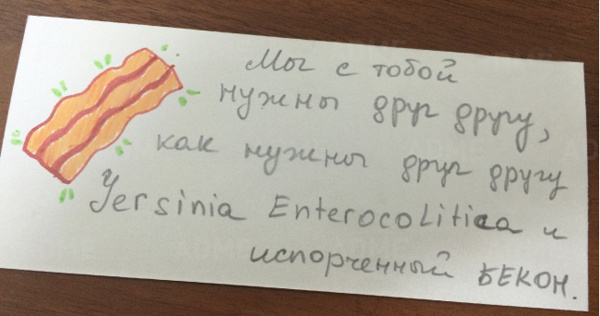 Мы с тобой
нужны друг другу,
как нужны друг другу
Yersinia Enterocolitica и
испорченный БЕКОН.